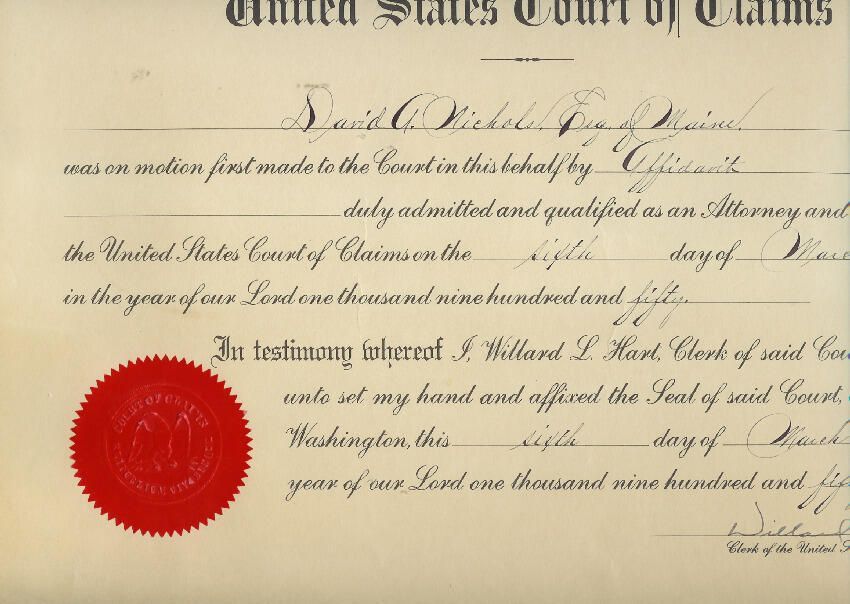 United States Court of Claims
David A. Nichols, Esq. of Maine,
was on motion first made to the Court in this behalf by Affidavit
duly admitted and qualified as an Attorney and
the United States Court of Claims on the sixth day of Marc
in the year of our Lord one thousand nine hundred and fifty.
In testimony whereof I, Willard L. Hart, Clerk of said Cou
unto set my hand and affixed the Seal of said Court,
Washington, this sixth day of March
year of our Lord one thousand nine hundred and fif
Willar
Clerk of the United S
COURT OF CLAIMS